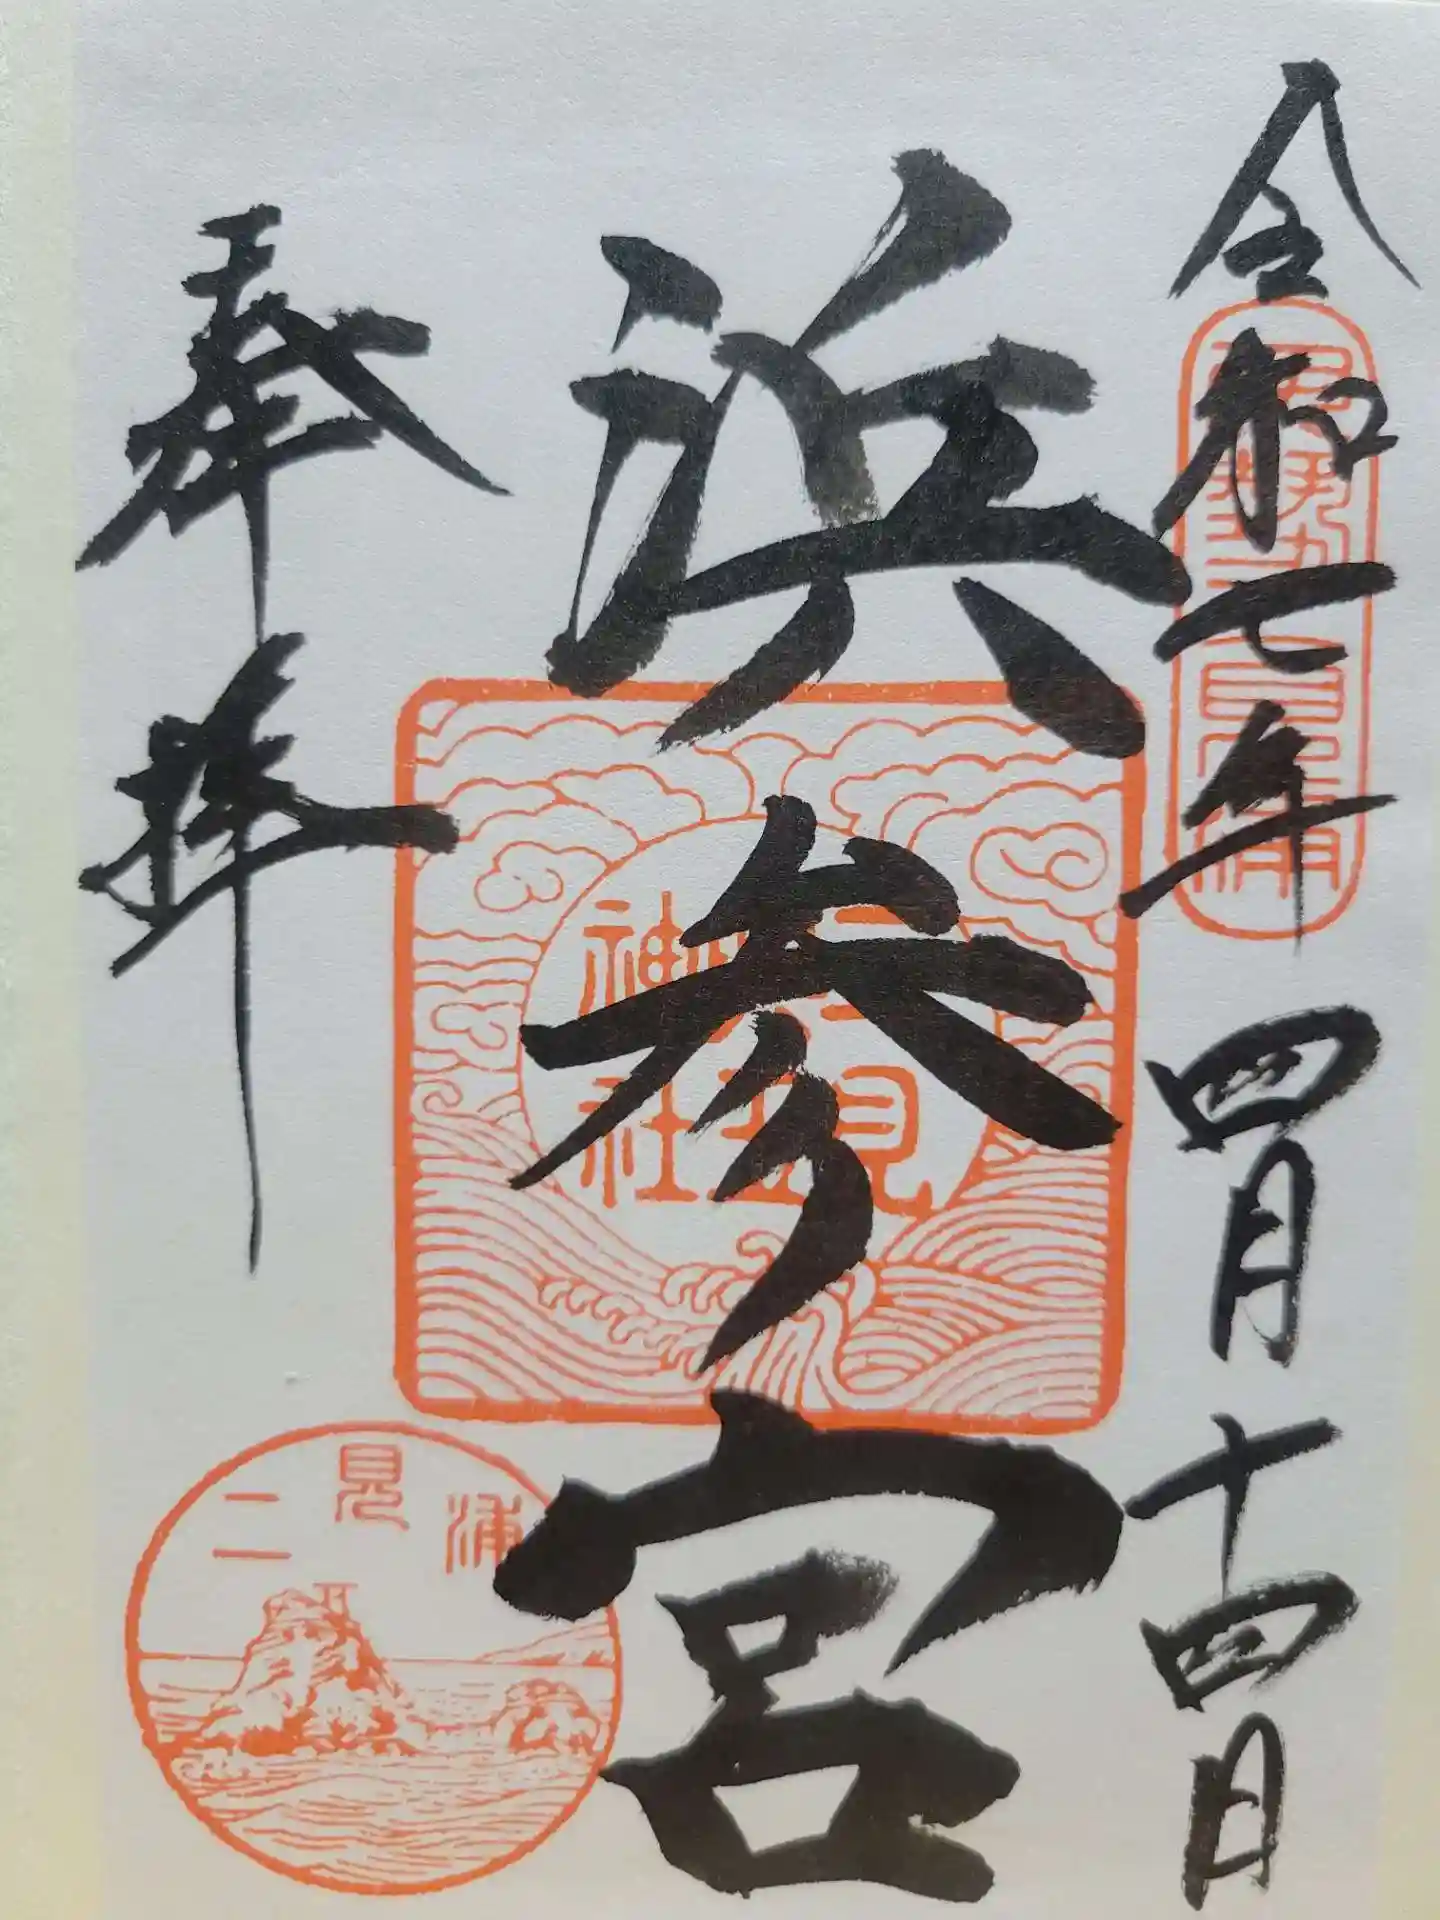 令和七年四月十四日
浜参宮
奉拝
二見
神社
二見浦